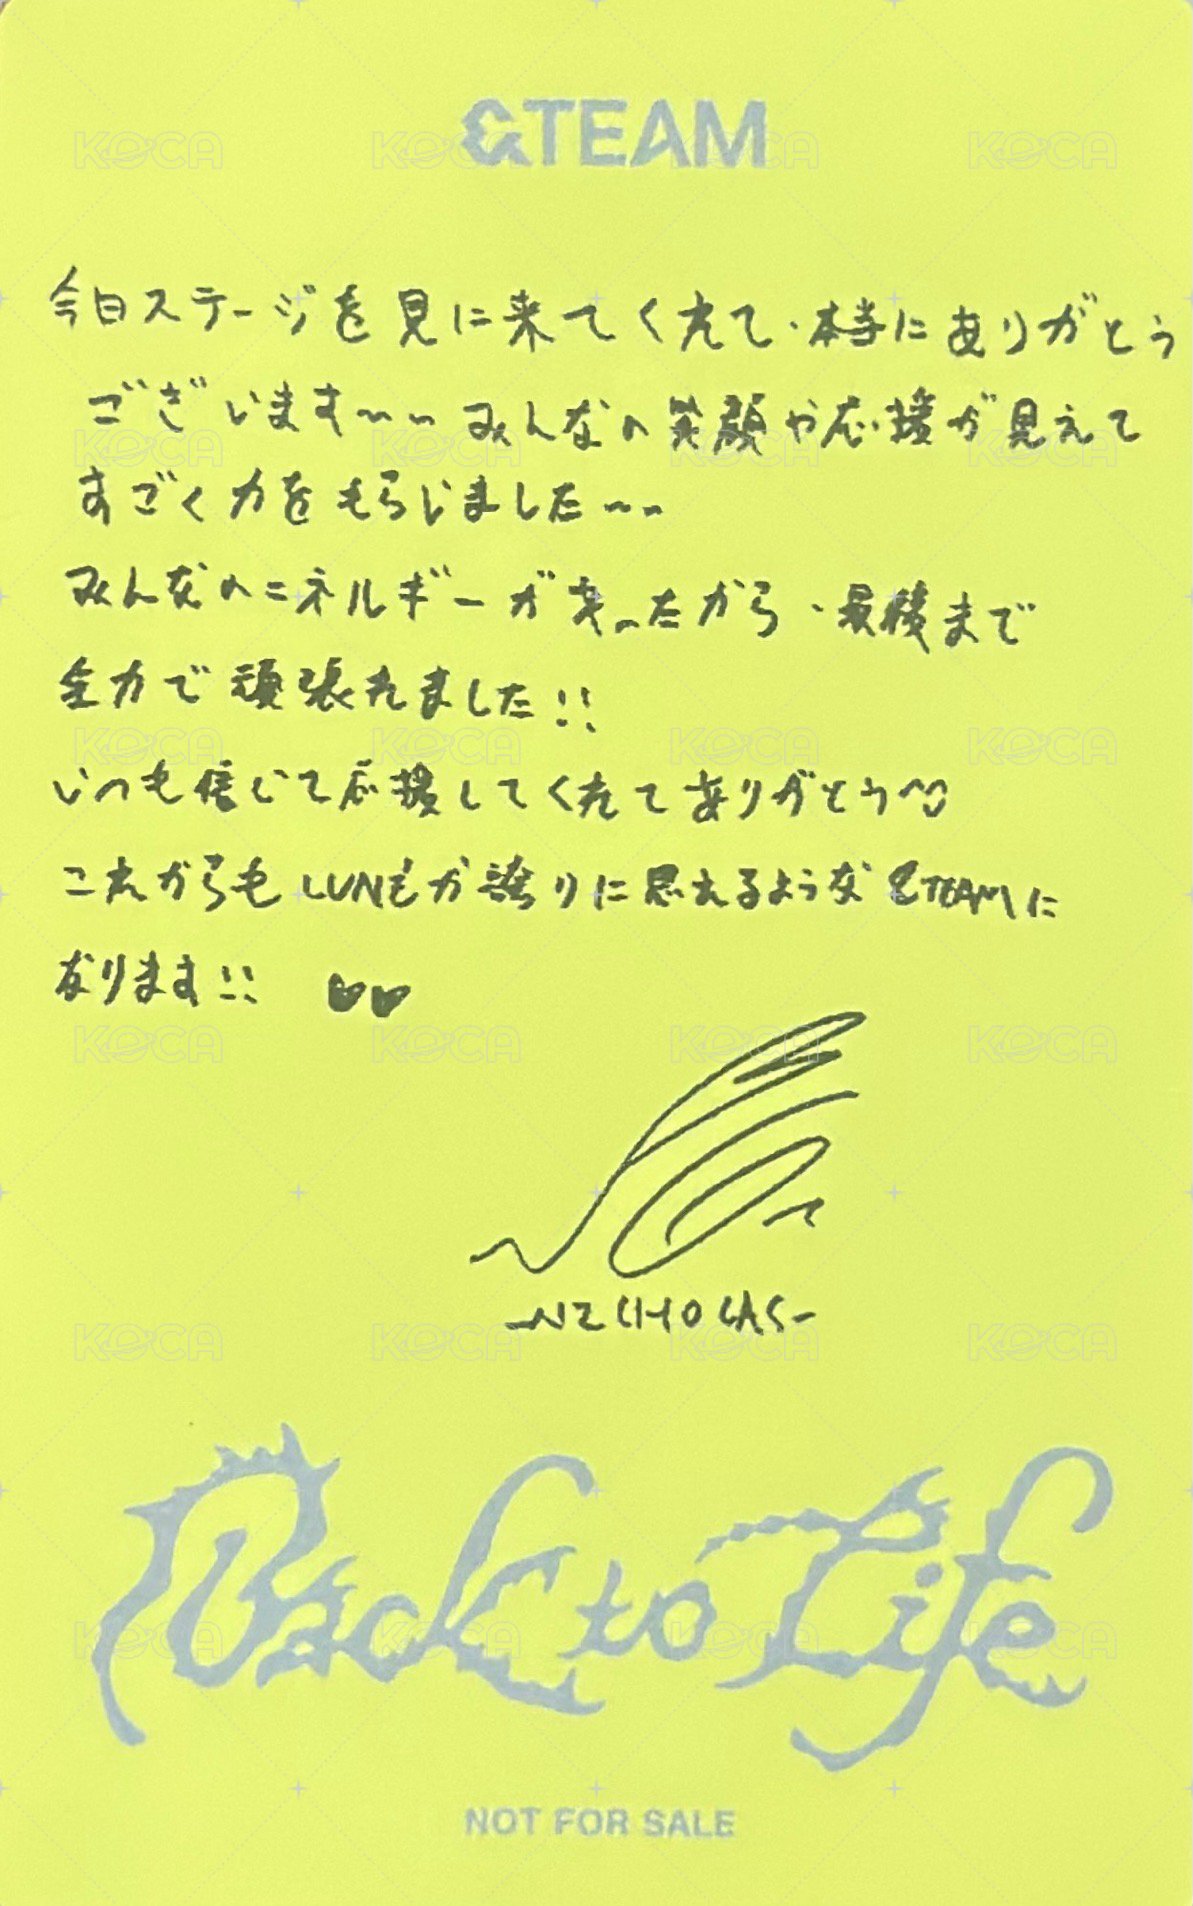 &TEAM
今日ステージを見に来てくれて、本当にありがとう
ございます~~ みんなの笑顔や応援が見えて
すごく力をもらいました~~
みんなのエネルギーがあったから、最後まで
全力で頑張れました!!
いつも信じて応援してくれてありがとう♡
これからも LUNÉが誇りに思えるような &TEAMに
なります!! ♥♥
NICHOLAS
Back to Life
NOT FOR SALE
KOCA